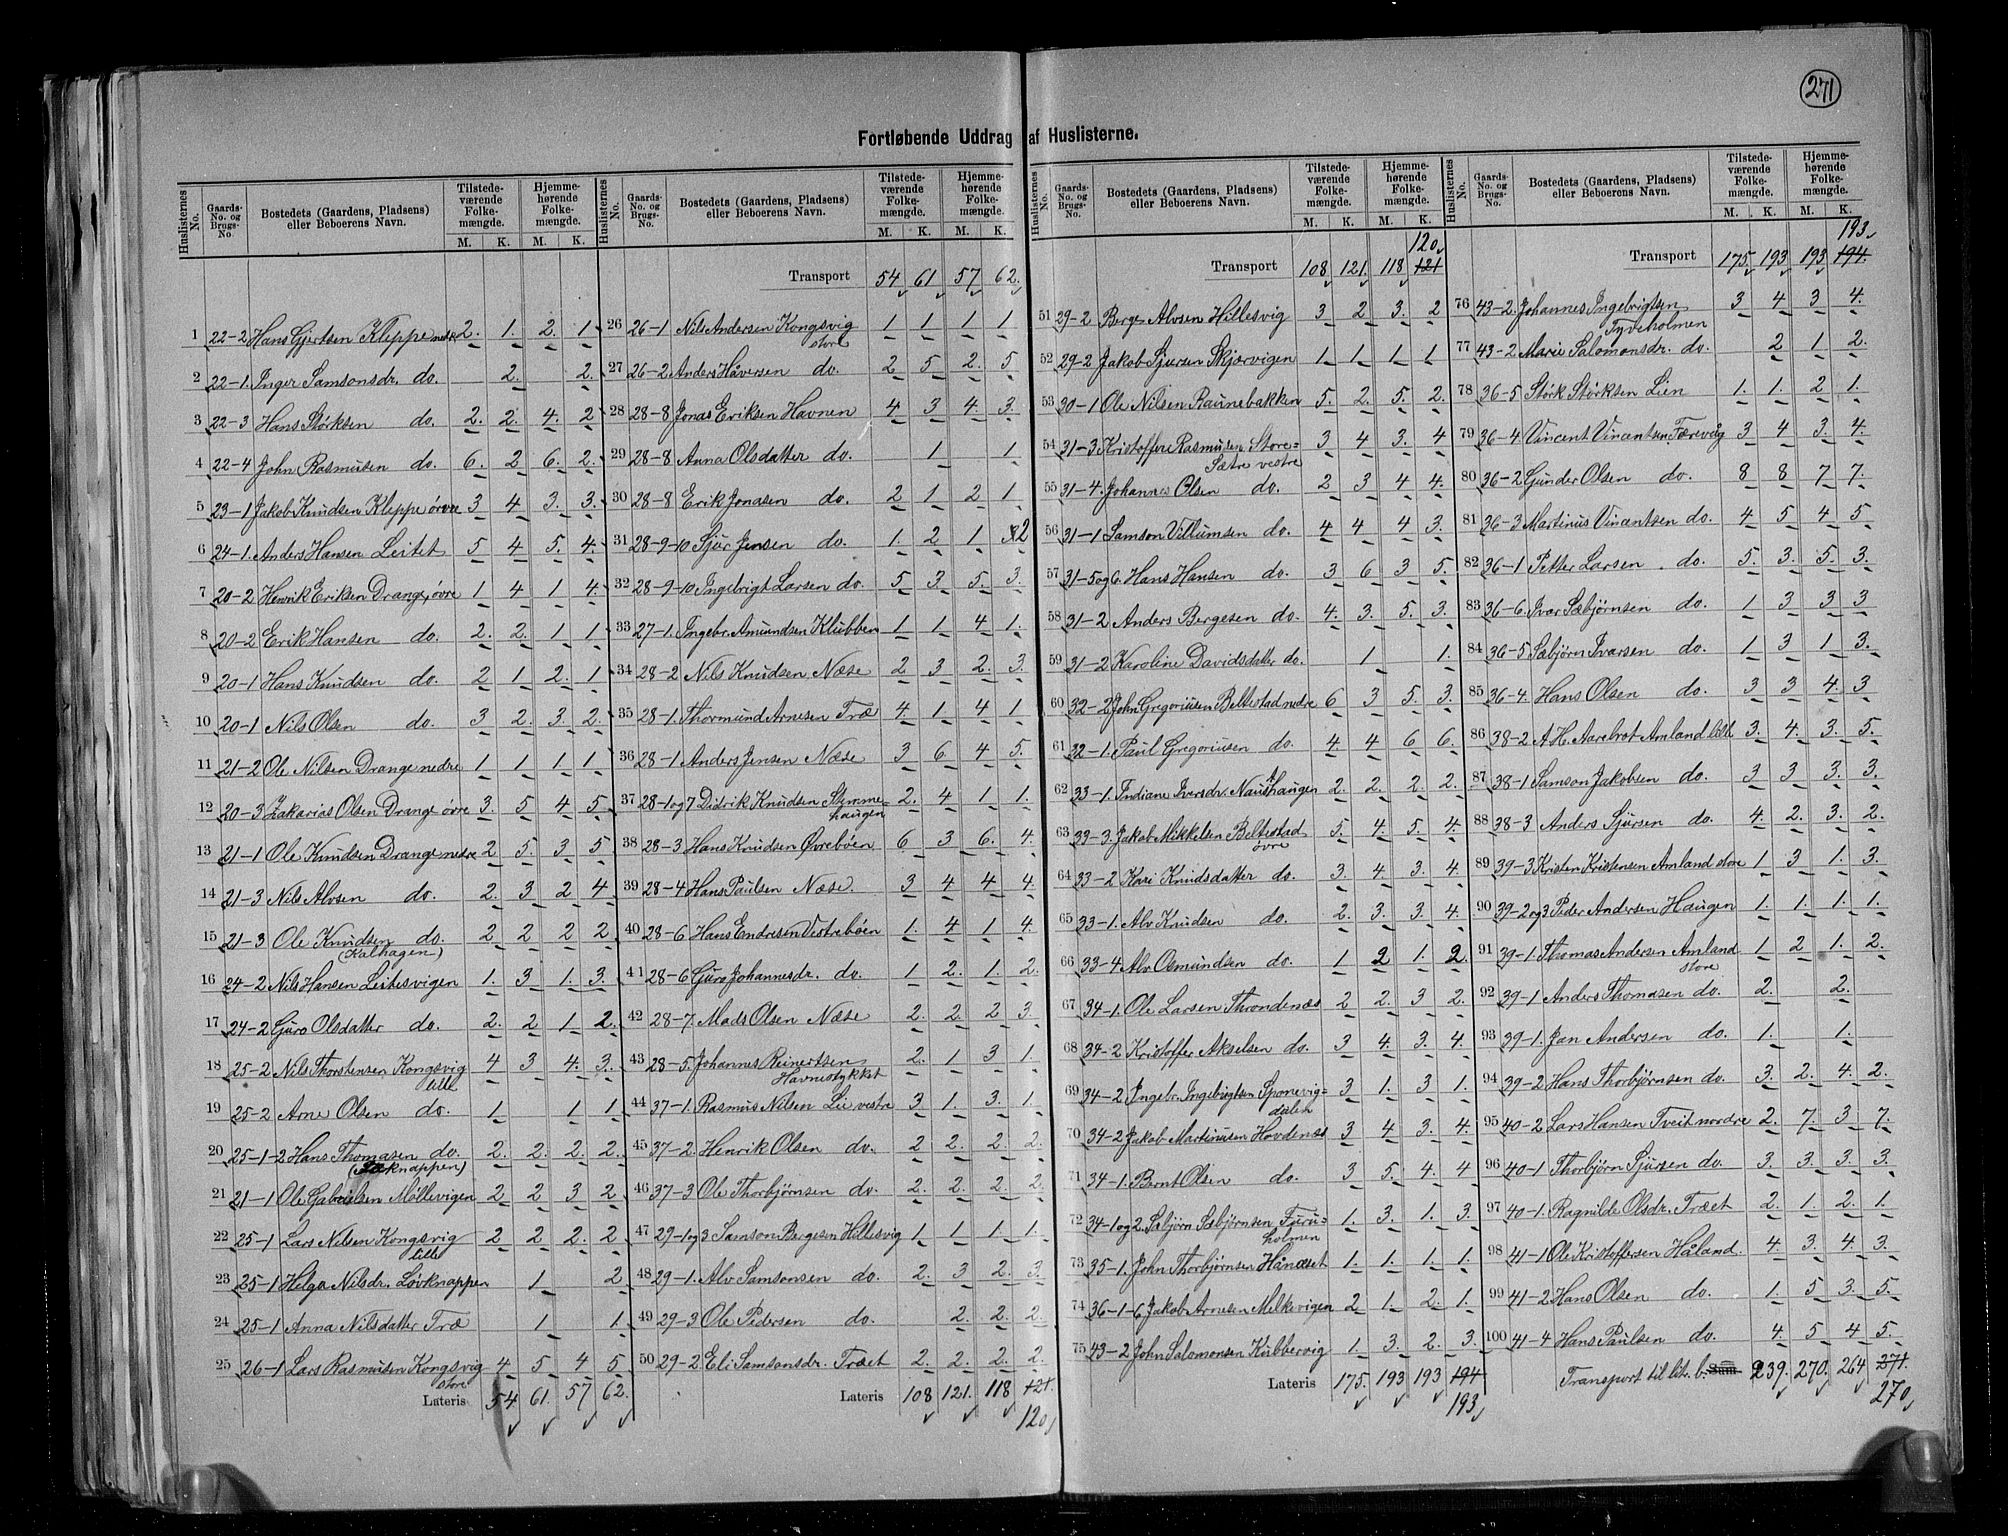 271
Fortløbende Uddrag af Huslisterne.
Huslisternes No. Gaards-No. og Brugs-No. Bostedets (Gaardens, Pladsens) eller Beboerens Navn. Tilstedeværende Folkemængde. M. K. Hjemmehørende Folkemængde. M. K.
1 22-2 Hans Gjertsen Kleppe nedre 2. 1. 2. 1
2 22-1. Inger Samsonsdr. do. 2. 2.
3 22-3 Hans Størksen do. 2. 2. 4. 2
4 22-4 John Rasmusen do. 6. 2 6. 2.
5 23-1 Jakob Knudsen Kleppe øvre 3 4 3. 3.
6 24-1. Anders Hansen Leitet 5 4 5. 4.
7 20-2 Henrik Eriksen Drange, øvre 1 4 1 4.
8 20-2 Erik Hansen do. 2. 2. 1 1
9 20-1 Hans Knudsen do. 2 1 2. 1
10 20-1 Nils Olsen do. 3 2. 3. 2.
11 21-2 Ole Nilsen Drange nedre 1 1 1 1
12 20-3 Zakarias Olsen Drange øvre 3. 5 4 5
13 21-1 Ole Knudsen Drange nedre 2 5 3 5
14 21-3 Nils Alvsen do. 2. 3 2 4
15 21-3 Ole Knudsen do. 2. 2 2 2
(Kalhagen)
16 24-2 Nils Hansen Leitesvigen 1. 3 1. 3.
17 24-2 Guro Olsdatter do. 2. 2 1 2.
18 25-2 Nils Thorstensen Kongsvig 4 3 4. 3.
lille
19 25-2 Arne Olsen do. 1 1 1
20 25-1-2 Hans Thomasen do. 2. 2. 2. 2.
21 21-1 Ole Gabrielsen Möllevigen 2 2 3 2
22 25-1 Lars Nilsen Kongsvig 2 2 2. 2
lille
23 25-1 Helga Nilsdr. Løvknappen 1 2
24 25-1 Anna Nilsdatter Træ 1 1.
25 26-1 Lars Rasmusen Kongsvig 4 5 4 5
store
Lateris 54 61. 57 62.
Huslisternes No. Gaards-No. og Brugs-No. Bostedets (Gaardens, Pladsens) eller Beboerens Navn. Tilstedeværende Folkemængde. M. K. Hjemmehørende Folkemængde. M. K.
Transport 54 61 57 62.
26 26-1 Nils Andersen Kongsvig 1 1 1 1
store
27 26-2 Anders Håversen do. 2 5 2. 5
28 28-8 Jonas Eriksen Havnen 4 3 4 3.
29 28-8 Anna Olsdatter do. 1 1
30 28-8 Erik Jonasen do. 2 1 2 1
31 28-9-10 Sjur Jensen do. 1. 2 1 2
32 28-9-10 Ingebrigt Larsen do. 5 3 5. 3
33 27-1. Ingebr. Amundsen Klubben 1 1 4 1.
34 28-2 Nils Knudsen Næse 2 3 2. 3
35 28-1. Thormund Arnesen Træ 4. 1 4 1
36 28-1 Anders Jensen Næse 3 6 4 5.
37 28-1og7 Didrik Knudsen Stemme= 2. 4 1 1.
haugen
38 28-3 Hans Knudsen Øvrebøen 6 3 6. 4
39 28-4 Hans Paulsen Næse. 3 4 4 4.
40 28-6 Hans Endresen Vestrebøen 1. 4 1 4.
41 28-6 Guro Johannesdr. do. 1 2. 1. 2
42 28-7 Mads Olsen Næse 2. 2 2 3
43 28-5. Johannes Reinertsen 2. 1 3 1.
Havnestykket
44 37-1. Rasmus Nilsen Lie vestre 3 1. 3. 1.
45 37-2 Henrik Olsen do. 2 2. 2. 2.
46 37-3 Ole Thorbjørnsen do. 2. 2. 2. 2.
47 29-1og3 Samson Bergesen Hillesvig 1 1 1 1.
48 29-1. Alv Samsonsen do. 2. 3 2. 3.
49 29-3 Ole Pedersen do. 2. 2. 2.
50 29-2 Eli Samsonsdr. Træet 2. 2. 2. 2.
Lateris 108 121. 118 121.
120
Huslisternes No. Gaards-No. og Brugs-No. Bostedets (Gaardens, Pladsens) eller Beboerens Navn. Tilstedeværende Folkemængde. M. K. Hjemmehørende Folkemængde. M. K.
120
Transport 108 121. 118 121
51 29-2 Berge Alvsen Hillesvig 3 2 3. 2
52 29-2 Jakob Sjursen Skjærvigen 1 1 1 1
53 30-1 Ole Nilsen Raunebakken 5. 2. 5. 2.
54 31-3 Kristoffer Rasmusen Store= 3 4 3. 4
Sætre vestre
55 31-4. Johannes Olsen do. 2 3 4 4.
56 31-1 Samson Villumsen do. 4 4 4 3.
57 31-5og6. Hans Hansen do. 3 6 3 5.
58 31-2 Anders Bergesen do. 4. 3. 5. 3.
59 31-2 Karoline Davidsdatter do. 1 1.
60 32-2 John Gregoriusen Beltestad nedre 6 3 5. 3.
61 32-1. Paul Gregoriusen do. 4. 4 6 6.
62 33-1. Indiane Iversdr. Nausthaugen 2. 2. 2. 2.
63 33-3. Jakob Mikkelsen Beltestad 5. 4. 5. 4.
øvre
64 33-2 Kari Knudsdatter do. 3. 4 3. 4.
65 33-1. Alv Knudsen do. 2. 3. 3. 4.
66 33-4 Alv Osmundsen do. 1 2 1. 2.
67 34-1. Ole Larsen Throndenæs 2 2. 3 2.
68 34-2 Kristoffer Akselsen do. 3 4. 3. 4
69 34-2 Ingebr. Ingebrigtsen Sponevig= 3 1. 3 1.
dalen
70 34-2 Jakob Martinusen Hovdenæs 3 4 3. 4.
71 34-1. Bernt Olsen do. 3 5. 4. 4
72 34-1og2. Sæbjörn Sæbjörnsen Furu= 1. 3. 1. 3.
holmen
73 35-1. John Thorbjörnsen Hånæset 1. 1. 1. 1.
74 36-1-6 Jakob Arnesen Melkevigen 2 1. 2 1.
75 43-2 John Salomonsen Kubbervig 1. 3. 2. 3.
Lateris 175. 193 193 194
193
Huslisternes No. Gaards-No. og Brugs-No. Bostedets (Gaardens, Pladsens) eller Beboerens Navn. Tilstedeværende Folkemængde. M. K. Hjemmehørende Folkemængde. M. K.
193
Transport 175. 193 193 194.
76 43-2 Johannes Ingebrigtsen 3 4 3 4.
Tyveholmen
77 43-2 Marie Salomonsdr. do. 2 1 2.
78 36-5 Størk Størksen Lien 1. 1. 2 1.
79 36-4 Vincent Vincentsen Færevåg 3 4 3. 4.
80 36-2 Gunder Olsen do. 8 8 7 7.
81 36-3 Martinus Vincentsen do. 4 5 4 5
82 36-1 Petter Larsen do. 5. 3. 5. 3.
83 36-6. Ivar Sæbjörnsen do. 1 3 3 3
84 36-5 Sæbjörn Ivarsen do. 1 3 1 3.
85 36-4. Hans Olsen do. 3 3 4. 3
86 38-2 A. H. Aarebrot Amland lille 3. 4. 3. 5.
87 38-1 Samson Jakobsen do. 3 3 3. 3.
88 38-3 Anders Sjursen do. 4. 2. 3. 2.
89 39-3 Kristen Kristensen Amland store 1 3 1. 3.
90 39-2og3 Peder Andersen Haugen 1. 1. 1. 1.
91 39-1. Thomas Andersen Amland 1 2 1. 2.
store
92 39-1 Anders Thomasen do. 2. 2.
93 39-1. Jan Andersen do. 1. 1.
94 39-2 Hans Thorbjørnsen do. 3. 2. 4. 2.
95 40-2 Lars Hansen Tveit nordre 2. 7. 3 7.
96 40-1 Thorbjörn Sjursen do. 3. 3. 3. 3.
97 40-1. Ragnilde Olsdr. Træet 2. 1. 2. 1.
98 41-1 Ole Kristoffersen Håland. 4. 3. 4 3.
99 41-2 Hans Olsen do. 1. 5 3. 5.
100 41-4 Hans Paulsen do. 4. 5 4 5.
Transport til litr. b. Sum 239. 270. 264 271.
270